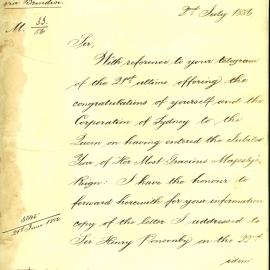 via Brindisi.
2nd July 1886
M. 33/86
Sir,
With reference to your telegram
of the 21st ultimo, offering the
congratulations of yourself and the
Corporation of Sydney to the
Queen on having entered the Jubilee
Year of Her Most Gracious Majesty's
Reign: I have the honour to
forward herewith for your information
copy of the letter I addressed to
Sir Henry Ponsonby on the 22nd